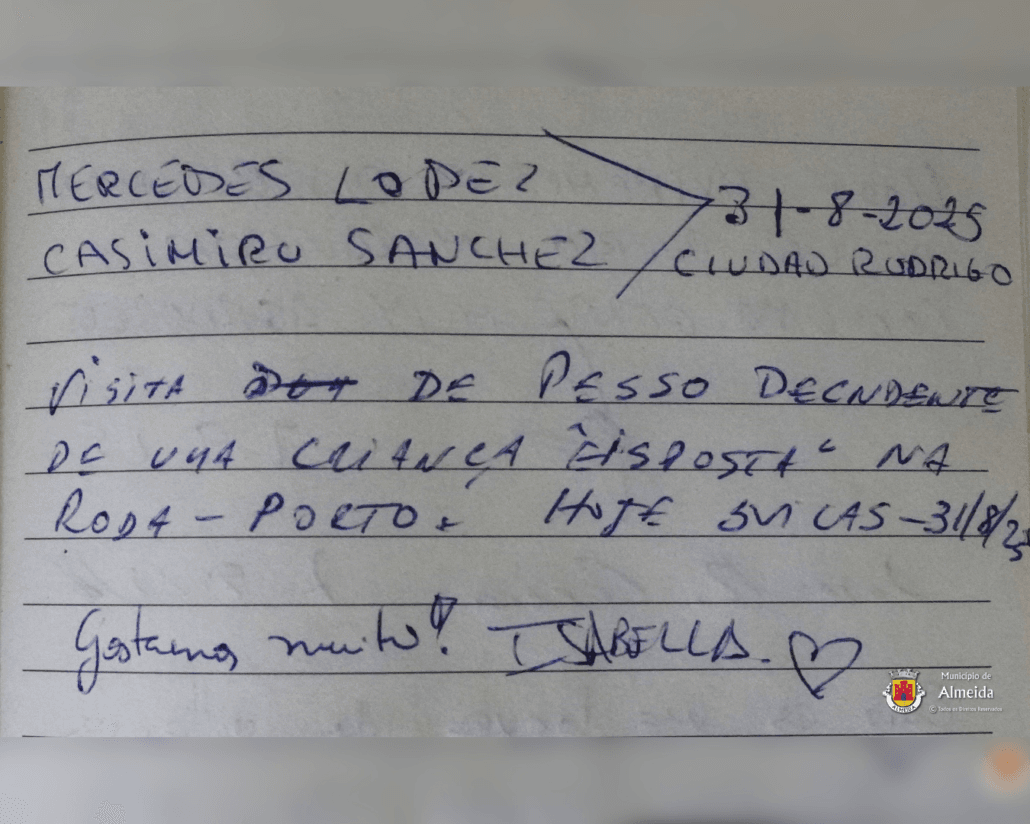 MERCEDES LOPEZ
31-8-2025
CASIMIRO SANCHEZ
CIUDAD RODRIGO
VISITA DE PESSO DECNDENTE
DE UMA CRIANÇA "EISPOSTA" NA
RODA - PORTO. HOJE SUICAS - 31/8/25
Gostamos muito! ISABELLA.
Município de
Almeida
ALMEIDA
© Todos os Direitos Reservados